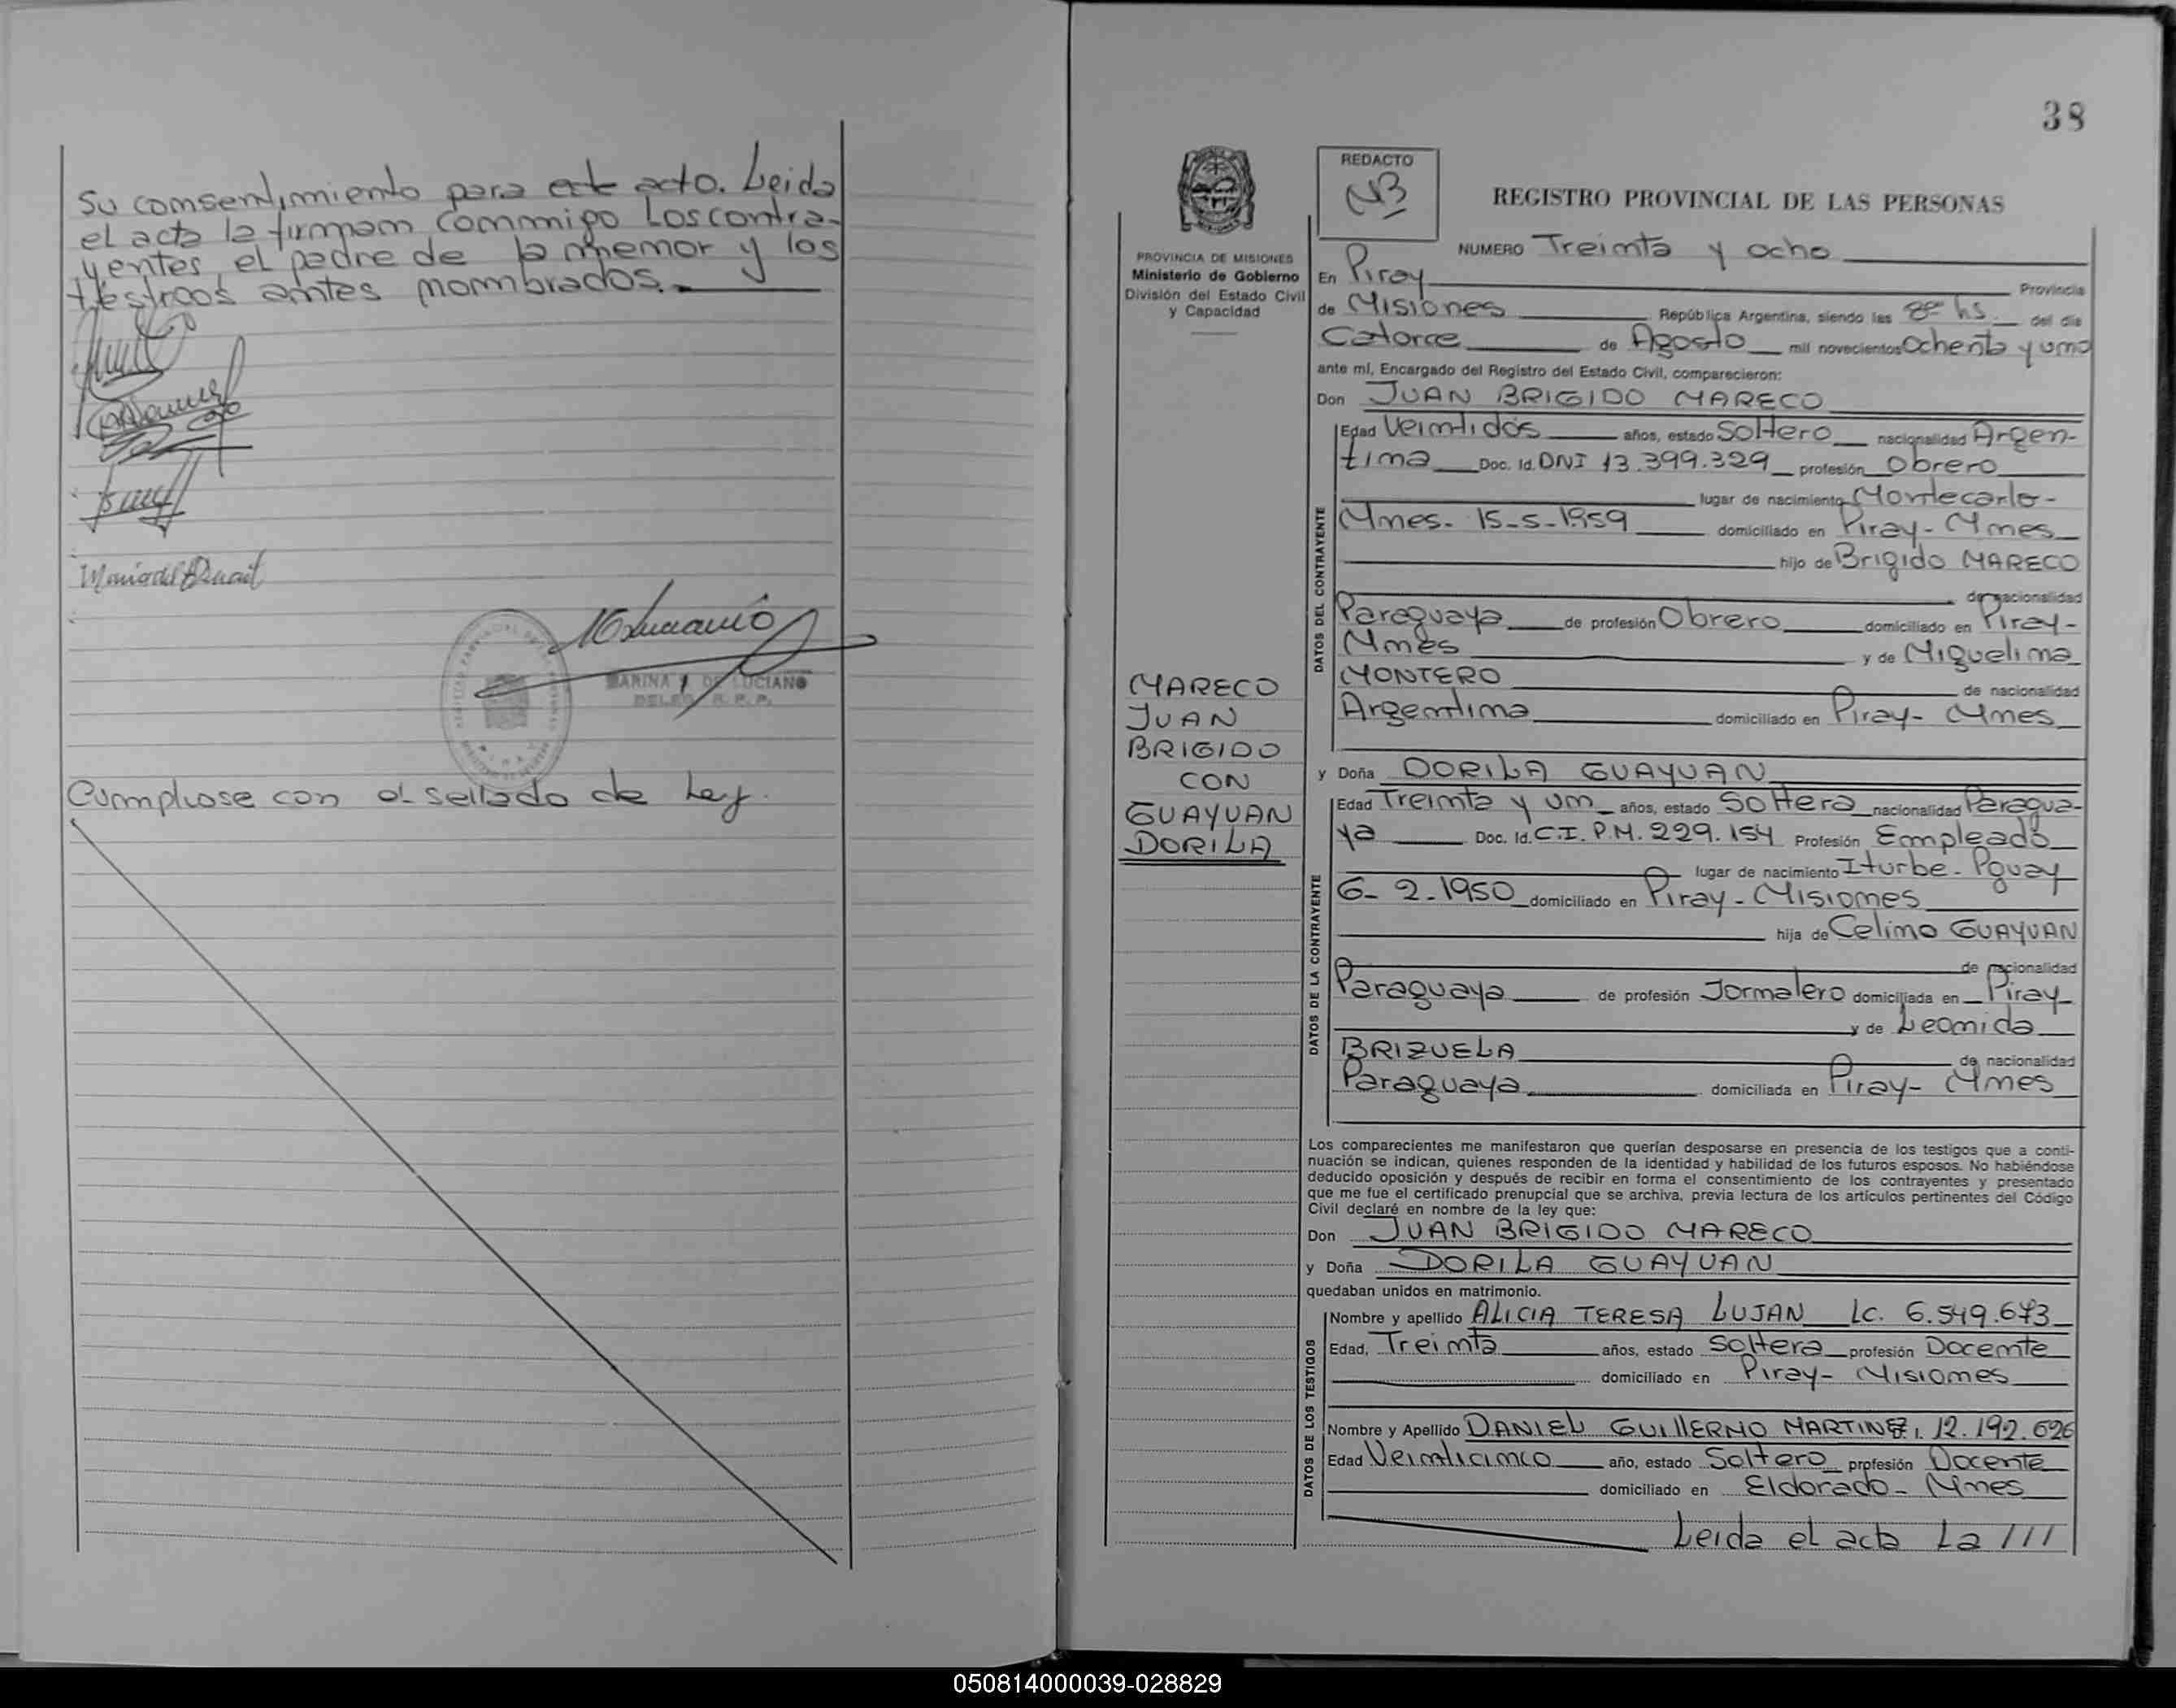 Su consentimiento para este acto. Leida
el acta la firman conmigo Los contra-
yentes, el padre de la menor y los
testigos antes nombrados.
MARINA DE LUCIANO
DELEG. R. P. P.
Cumplase con el sellado de Ley.
38
REDACTO
NB
REGISTRO PROVINCIAL DE LAS PERSONAS
PROVINCIA DE MISIONES
Ministerio de Gobierno
División del Estado Civil
y Capacidad
NUMERO Treinta y ocho
En Piray Provincia
de Misiones República Argentina, siendo las 8 hs del día
Catorce de Agosto mil novecientos Ochenta y uno
ante mí, Encargado del Registro del Estado Civil, comparecieron:
Don JUAN BRIGIDO MARECO
DATOS DEL CONTRAYENTE
Edad Veintidós años, estado Soltero nacionalidad Argen-
tina Doc. Id. DNI 13.399.329 profesión Obrero
lugar de nacimiento Montecarlo-
Mnes. 15-5-1959 domiciliado en Piray-Mnes
hijo de Brigido MARECO
de nacionalidad
Paraguaya de profesión Obrero domiciliado en Piray-
Mnes y de Miguelina
MONTERO de nacionalidad
Argentina domiciliado en Piray- Mnes
MARECO
JUAN
BRIGIDO
CON
GUAYUAN
DORILA
y Doña DORILA GUAYUAN
DATOS DE LA CONTRAYENTE
Edad Treinta y un años, estado Soltera nacionalidad Paragua-
ya Doc. Id. C.I. P.M. 229.154 Profesión Empleado
lugar de nacimiento Iturbe-Pguay
6-2-1950 domiciliado en Piray-Misiones
hija de Celino GUAYUAN
de nacionalidad
Paraguaya de profesión Jornalero domiciliada en Piray
y de Leonida
BRIZUELA de nacionalidad
Paraguaya domiciliada en Piray- Mnes
Los comparecientes me manifestaron que querían desposarse en presencia de los testigos que a conti-
nuación se indican, quienes responden de la identidad y habilidad de los futuros esposos. No habiéndose
deducido oposición y después de recibir en forma el consentimiento de los contrayentes y presentado
que me fue el certificado prenupcial que se archiva, previa lectura de los artículos pertinentes del Código
Civil declaré en nombre de la ley que:
Don JUAN BRIGIDO MARECO
y Doña DORILA GUAYUAN
quedaban unidos en matrimonio.
DATOS DE LOS TESTIGOS
Nombre y apellido ALICIA TERESA LUJAN LC. 6.549.673
Edad, Treinta años, estado Soltera profesión Docente
domiciliado en Piray- Misiones
Nombre y Apellido DANIEL GUILLERMO MARTINEZ. 12.192.626
Edad Veinticinco año, estado Soltero profesión Docente
domiciliado en Eldorado- Mnes
Leida el acta La ///
050814000039-028829